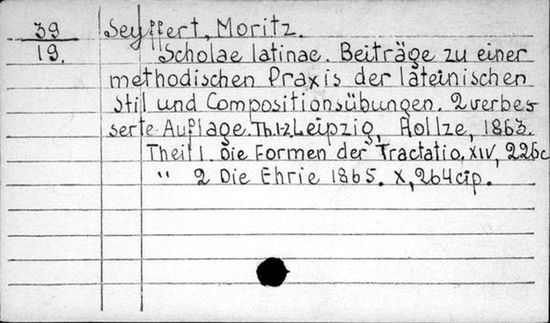 39 Seyffert, Moritz.
19. Scholae latinae. Beiträge zu einer
methodischen Praxis der lateinischen
Stil und Compositionsübungen. 2 verbes-
serte Auflage. Th.1-2. Leipzig, Hollze, 1863.
Theil 1. Die Formen der Tractatio. XIV, 226c
" 2 Die Ehrie 1865. X, 264 cip.